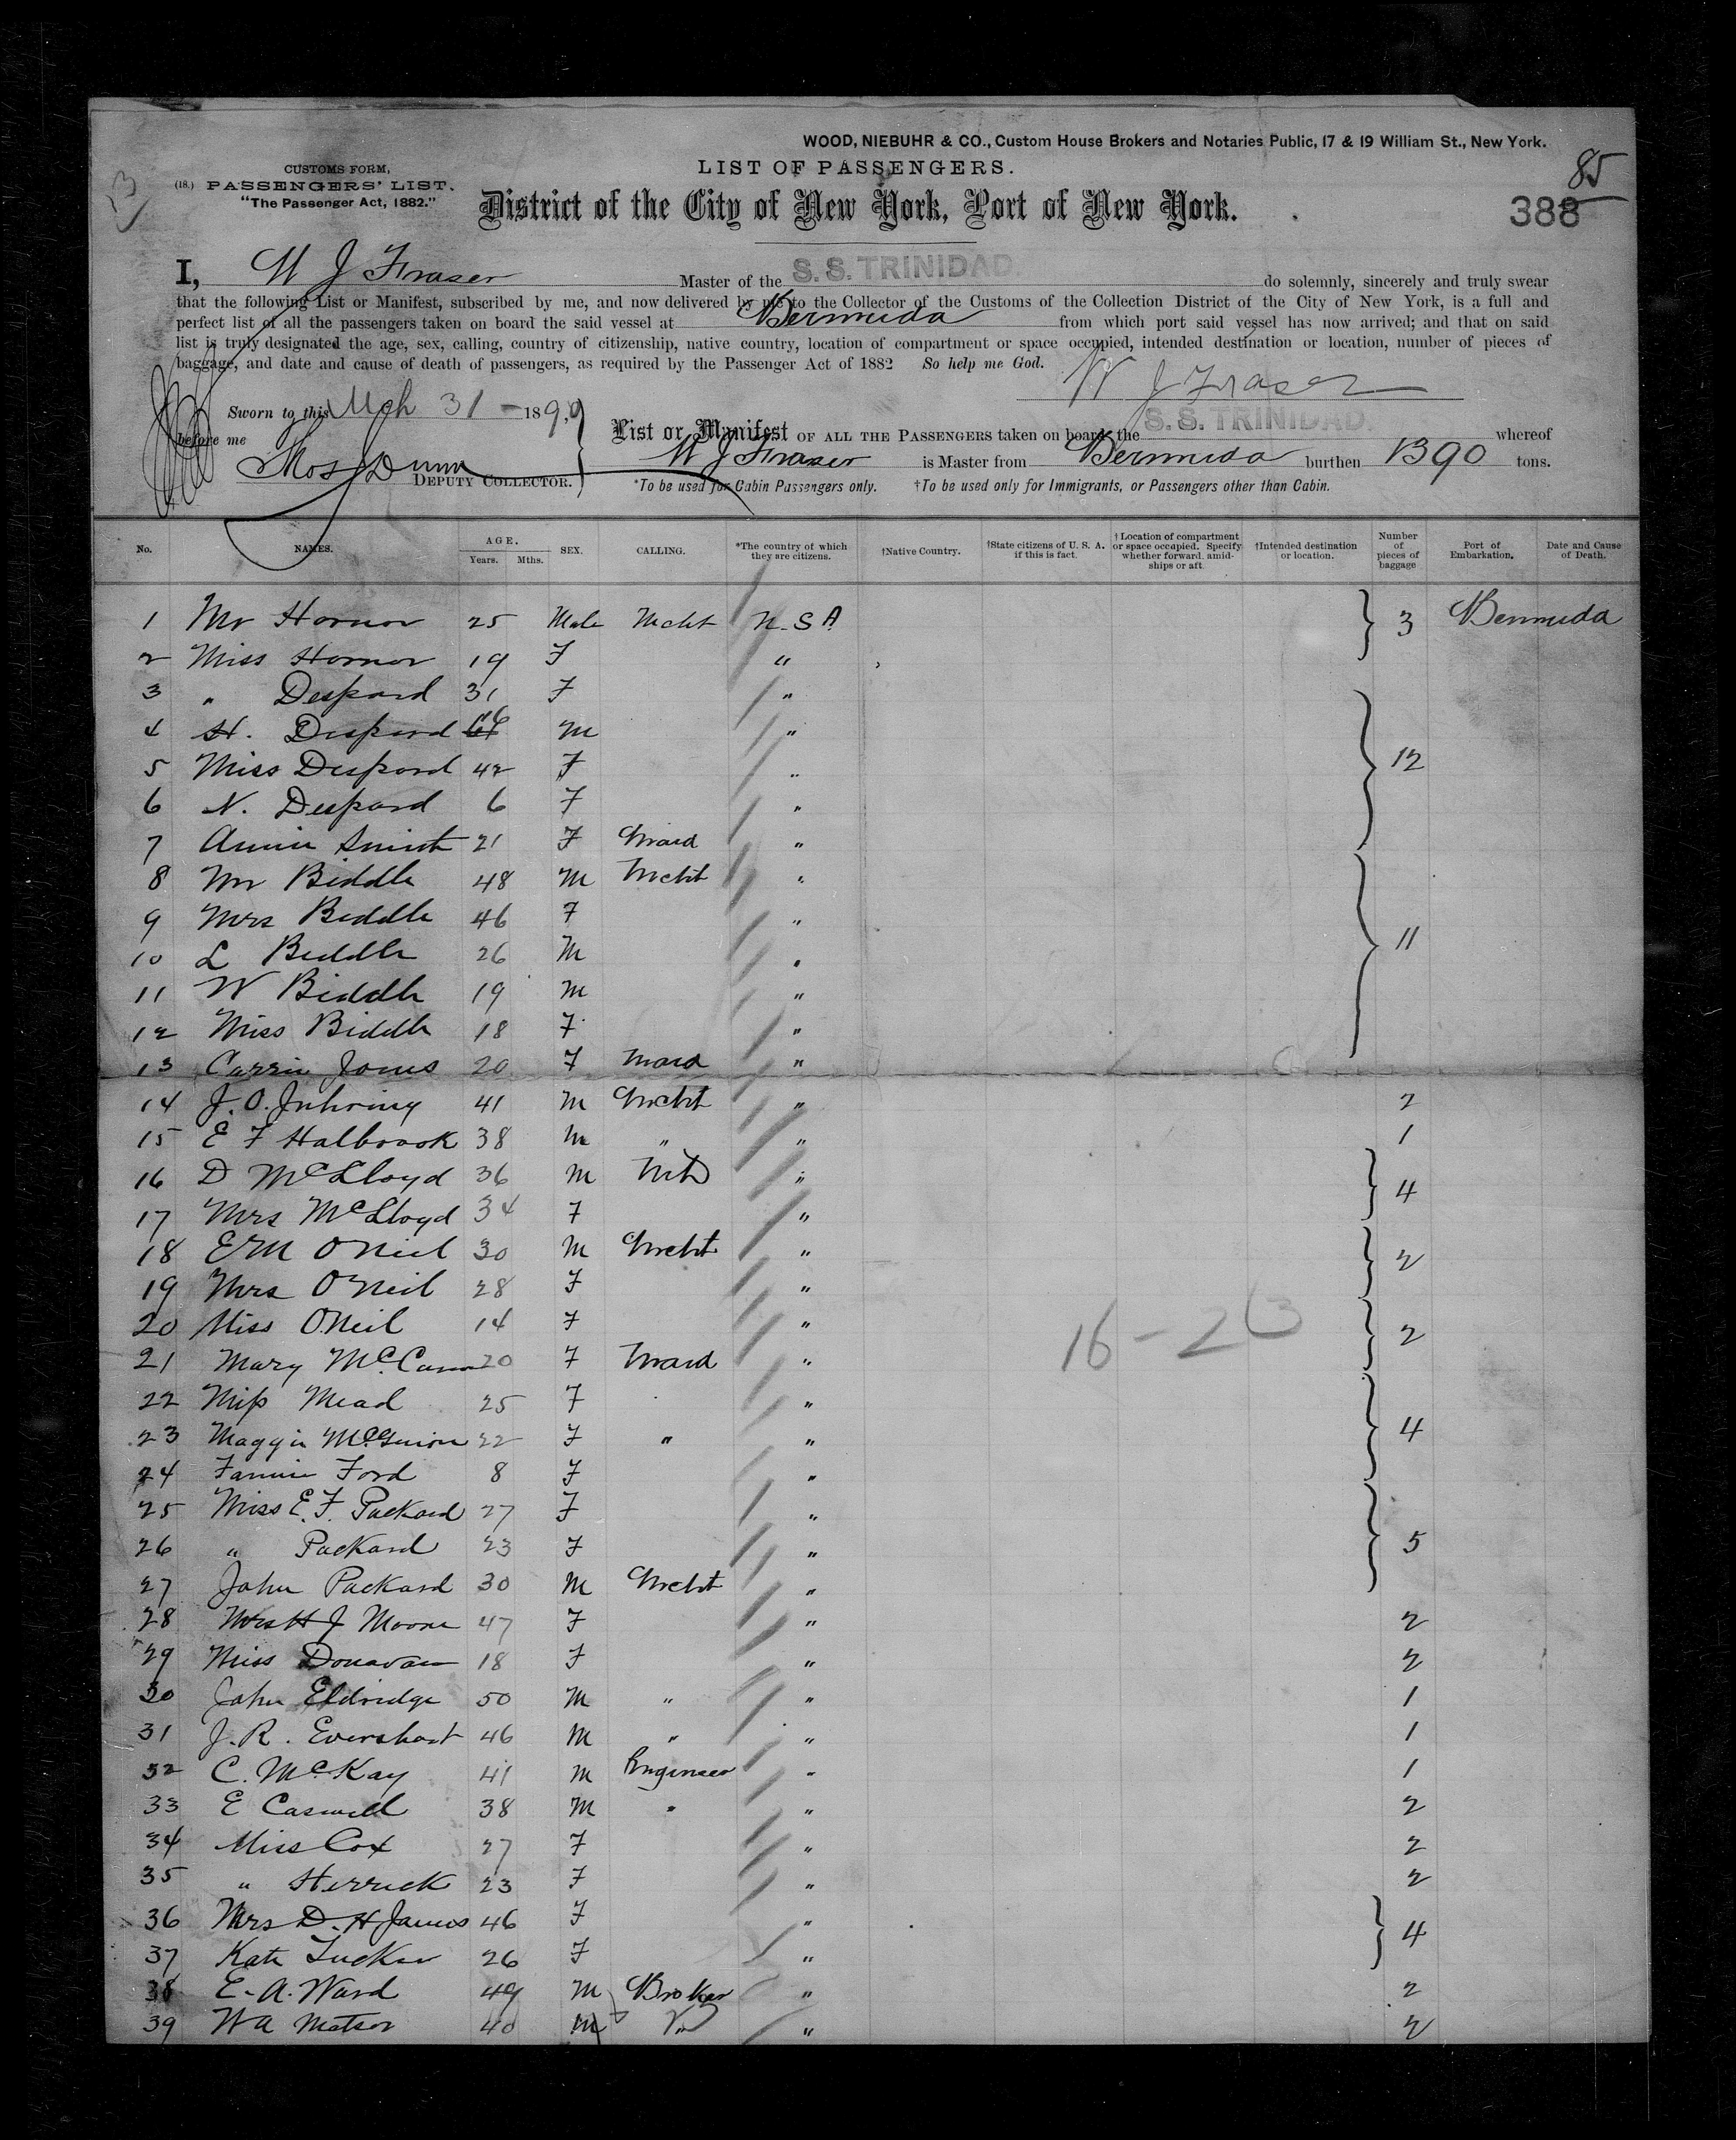 WOOD, NIEBUHR & CO., Custom House Brokers and Notaries Public, 17 & 19 William St., New York.
CUSTOMS FORM,
(18.) PASSENGERS' LIST.
"The Passenger Act, 1882."
LIST OF PASSENGERS.
85
388
District of the City of New York, Port of New York.
I, W J Fraser Master of the S. S. TRINIDAD. do solemnly, sincerely and truly swear
that the following List or Manifest, subscribed by me, and now delivered by me to the Collector of the Customs of the Collection District of the City of New York, is a full and
perfect list of all the passengers taken on board the said vessel at Bermuda from which port said vessel has now arrived; and that on said
list is truly designated the age, sex, calling, country of citizenship, native country, location of compartment or space occupied, intended destination or location, number of pieces of
baggage, and date and cause of death of passengers, as required by the Passenger Act of 1882 So help me God.
W J Fraser
Sworn to this Mch 31 - 1899
before me
Mos J Dunn
DEPUTY COLLECTOR.
List or Manifest OF ALL THE PASSENGERS taken on board the S. S. TRINIDAD. whereof
W J Fraser is Master from Bermuda burthen 1390 tons.
*To be used for Cabin Passengers only. †To be used only for Immigrants, or Passengers other than Cabin.
No. NAMES. AGE. Years. Mths. SEX. CALLING. *The country of which they are citizens. †Native Country. †State citizens of U. S. A. if this is fact. †Location of compartment or space occupied. Specify whether forward, amidships or aft. †Intended destination or location. Number of pieces of baggage Port of Embarkation. Date and Cause of Death.
1 Mr Hornor 25 Male Mcht U.S.A. 3 Bermuda
2 Miss Hornor 19 F "
3 " Despard 31 F "
4 H. Despard 66 M "
5 Miss Despard 42 F " 12
6 N. Despard 6 F "
7 Annie Smith 21 F Maid "
8 Mr Biddle 48 M Mcht "
9 Mrs Biddle 46 F "
10 L Biddle 26 M " 11
11 W Biddle 19 M "
12 Miss Biddle 18 F "
13 Carrie Jones 20 F Maid "
14 J. O. Juhring 41 M Mcht " 2
15 E F Halbrook 38 M " " 1
16 D McLloyd 36 M " 4
17 Mrs McLloyd 34 F "
18 E M O'Neil 30 M Mcht " 2
19 Mrs O'Neil 28 F "
20 Miss O'Neil 14 F " 2
16 - 23
21 Mary McCann 20 F Maid "
22 Miss Mead 25 F "
23 Maggie McGuion 22 F " " 4
24 Fannie Ford 8 F "
25 Miss E. F. Packard 27 F "
26 " Packard 23 F " 5
27 John Packard 30 M Mcht "
28 Mrs H J Moore 47 F " 2
29 Miss Donavan 18 F " 2
30 John Eldridge 50 M " " 1
31 J. R. Evershart 46 M " " 1
32 C. McKay 41 M Engineer " 1
33 E Caswell 38 M " " 2
34 Miss Cox 27 F " 2
35 " Herrick 23 F " 2
36 Mrs D. H James 46 F " 4
37 Kate Tucker 26 F "
38 E. A. Ward 49 M Broker " 2
39 W A Matson 40 M " 2